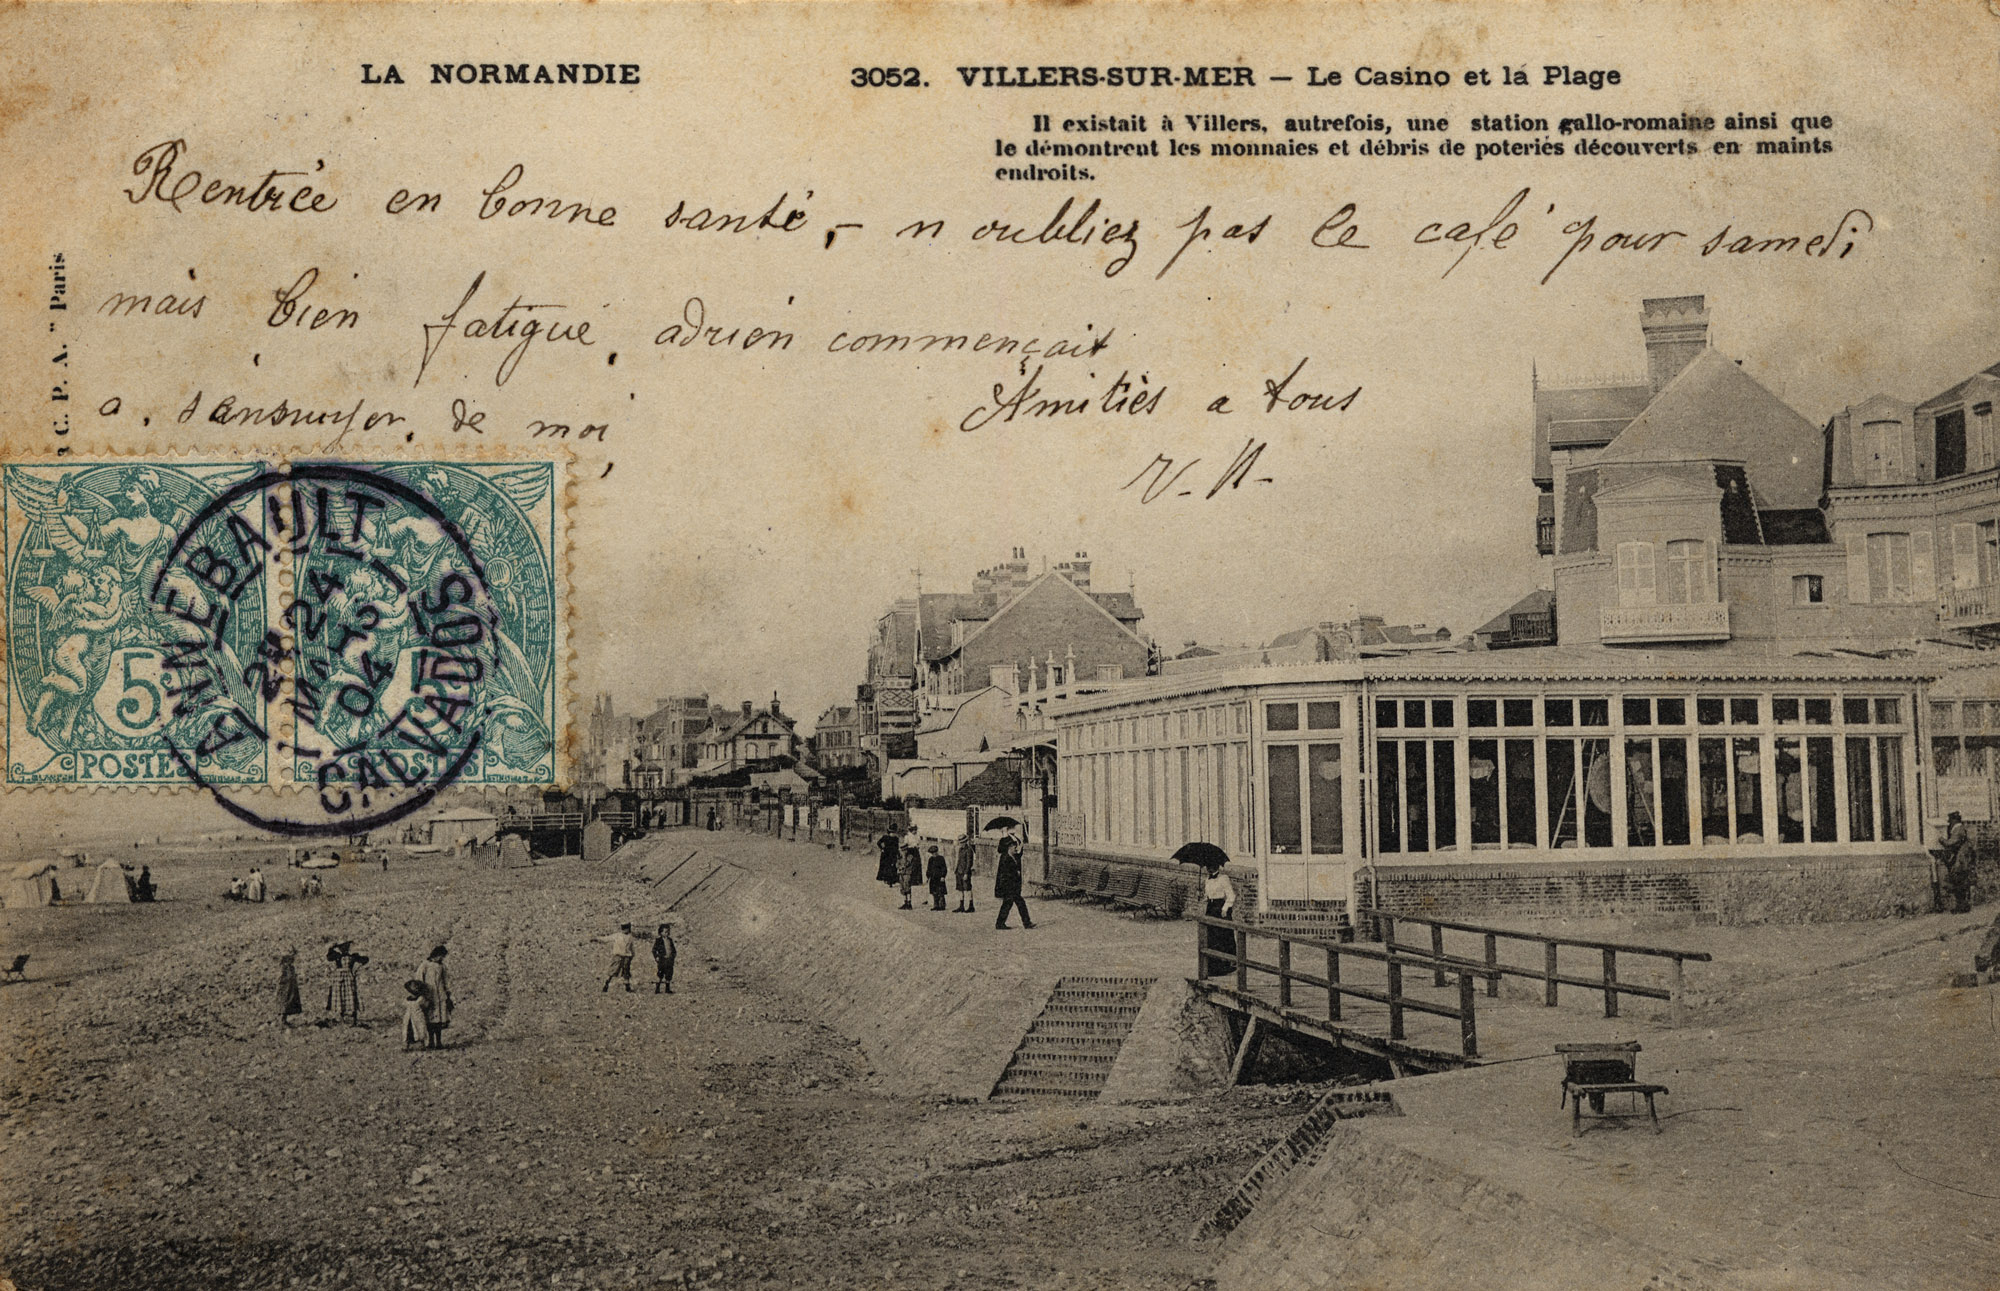 LA NORMANDIE
3052. VILLERS-SUR-MER — Le Casino et la Plage
Il existait à Villers, autrefois, une station gallo-romaine ainsi que
le démontrent les monnaies et débris de poteries découverts en maints
endroits.
Rentrée en bonne santé, – n oubliez pas le café pour samedi
mais bien fatigué, adrien commençait
a. s'ennuyer. de moi,
Amitiés a tous
V. N.
C. P. A. " Paris
5 5
POSTES POSTES
ANNEBAULT
2E 24
MARS
04
CALVADOS